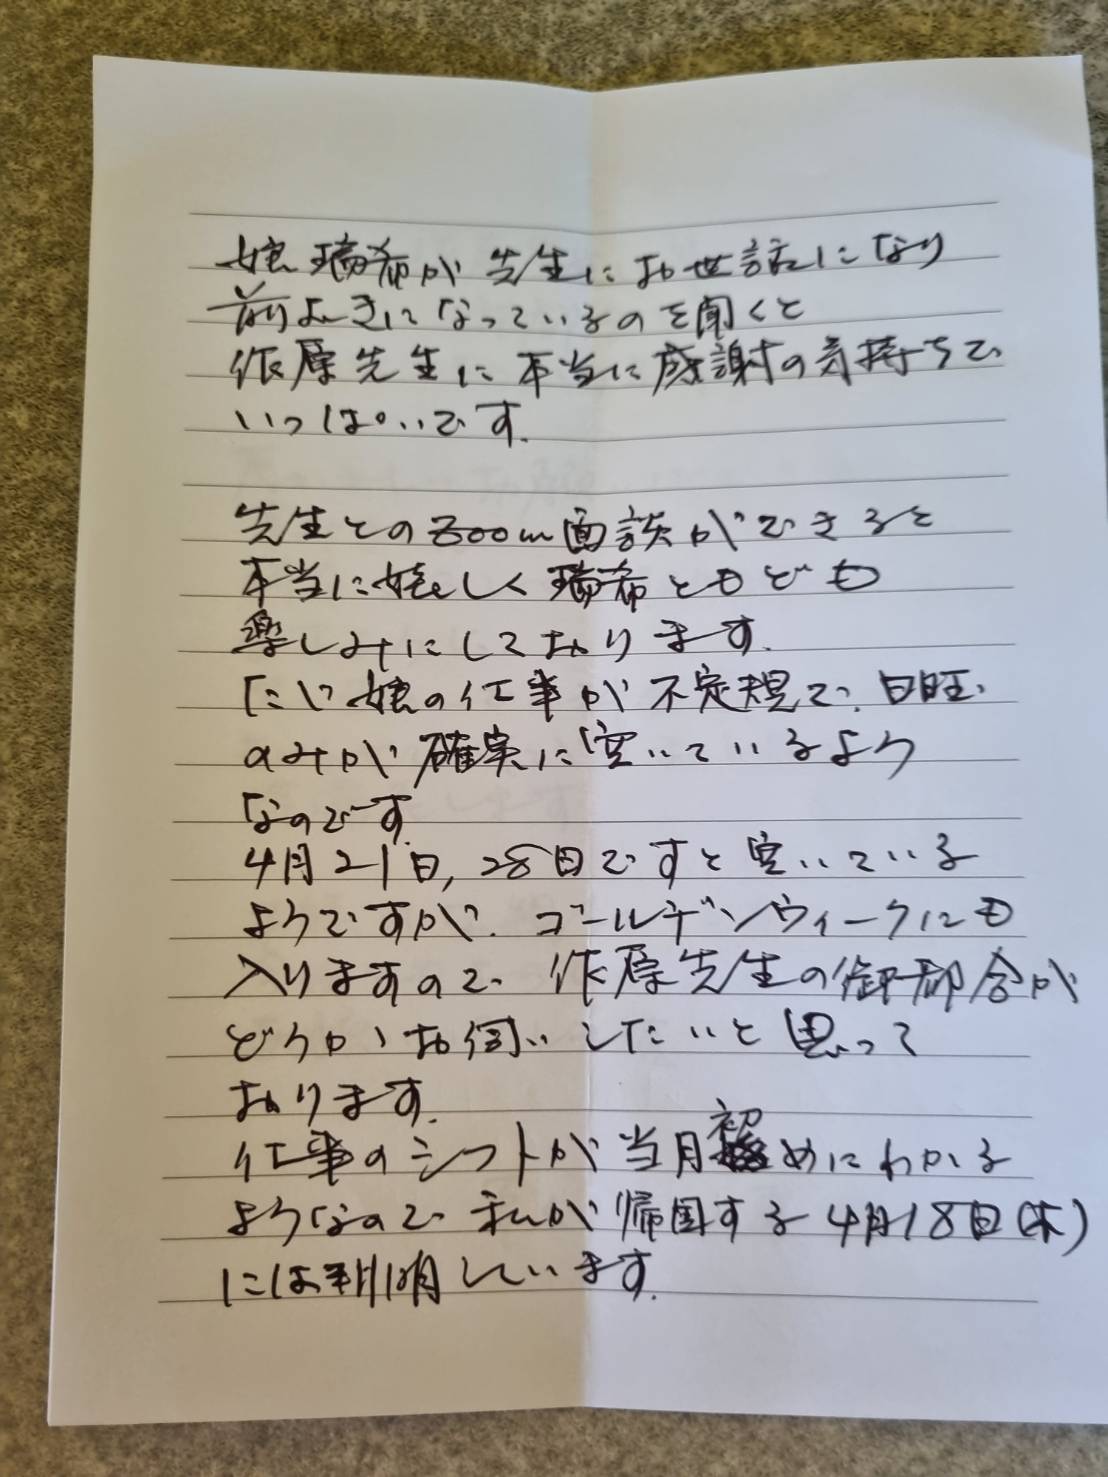 娘瑞希が先生にお世話になり
前よきになっているのを聞くと
作原先生に本当に感謝の気持ちで
いっぱいです。
先生とのZoom面談ができると
本当に嬉しく瑞希ともども
楽しみにしております。
ただ娘の仕事が不定規で、日曜
のみが確実に空いているよう
なのです。
4月21日,28日ですと空いている
ようですが、ゴールデンウィークにも
入りますので、作原先生の御都合が
どうかお伺いしたいと思って
おります。
仕事のシフトが当月初めにわかる
ようなので私が帰国する4月18日(木)
には判明しています。